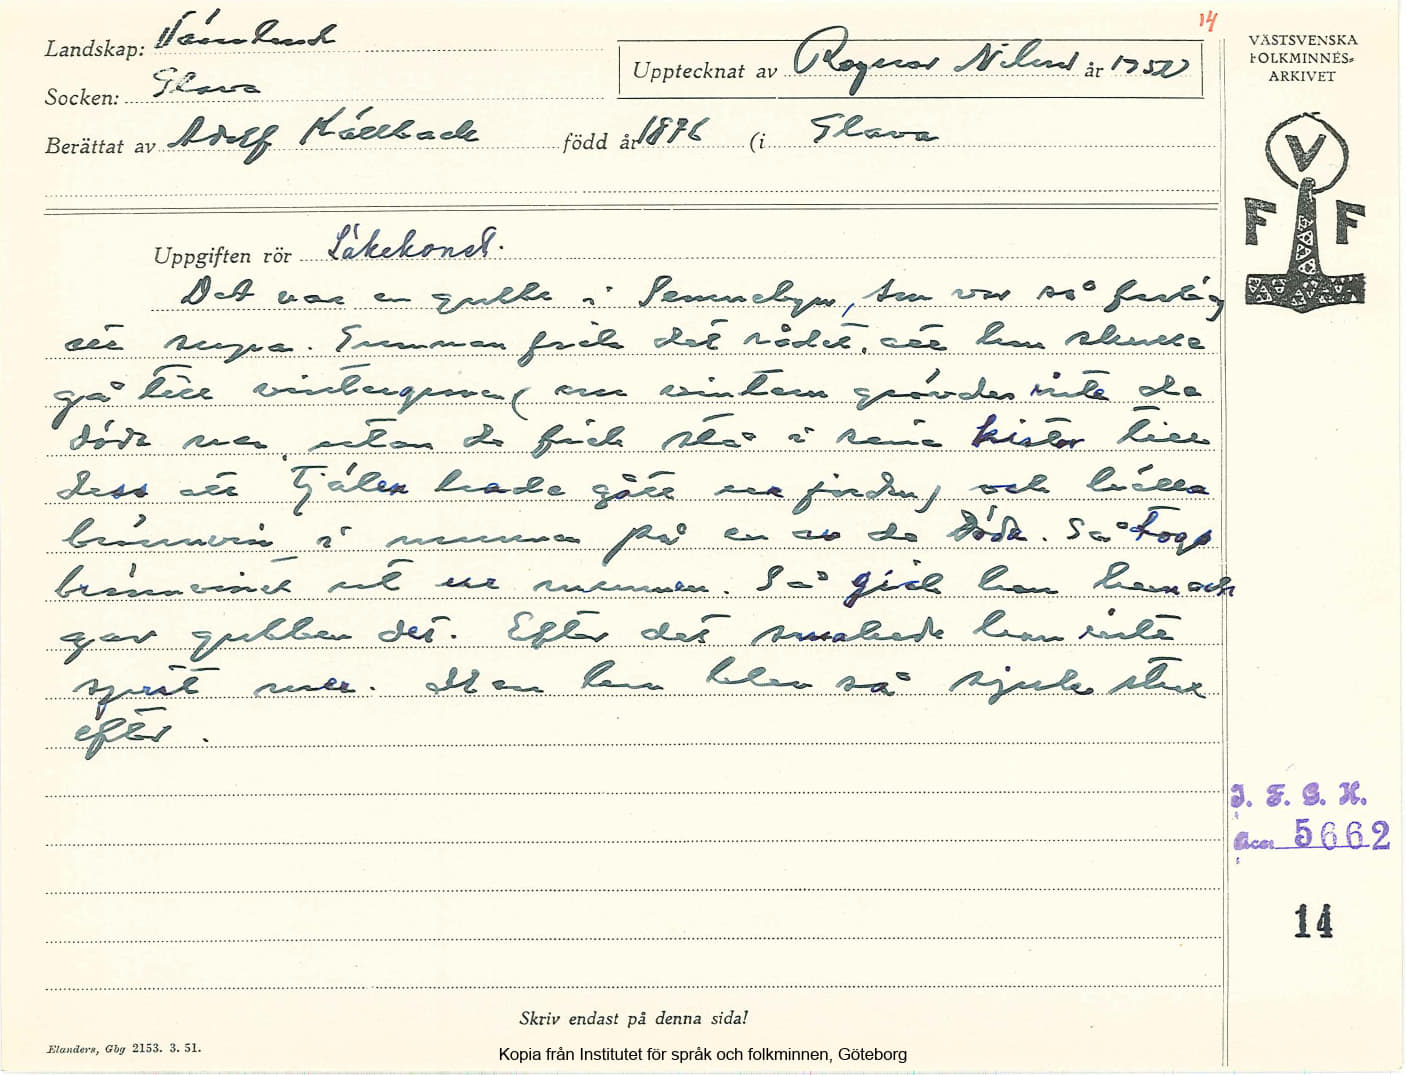 14
Landskap: Värmland
Socken: Glava
Upptecknat av Ragnar Nilsson år 1952
Berättat av Adolf Källback född år 1876 (i Glava
VÄSTSVENSKA
FOLKMINNES-
ARKIVET
V
F F
Uppgiften rör Läkekonst.
Det var en gubbe i, som var så farlig
att supa. Gumman fick det rådet, att hon skulle
gå till (om vintern grävdes inte de
döda ner utan de fick stå i sina kistor till
dess att Tjälen hade gått ur jorden) och hälla
brännvin i munnen på en av de döda. Så togs
brännvinet ut ur munnen. Så gick hon hem och
gav gubben det. Efter det smakade han inte
sprit mer. Men han blev så sjuk
efter.
I. F. G. H.
Acc. 5662
14
Skriv endast på denna sida!
Elanders, Gbg 2153. 3. 51.
Kopia från Institutet för språk och folkminnen, Göteborg